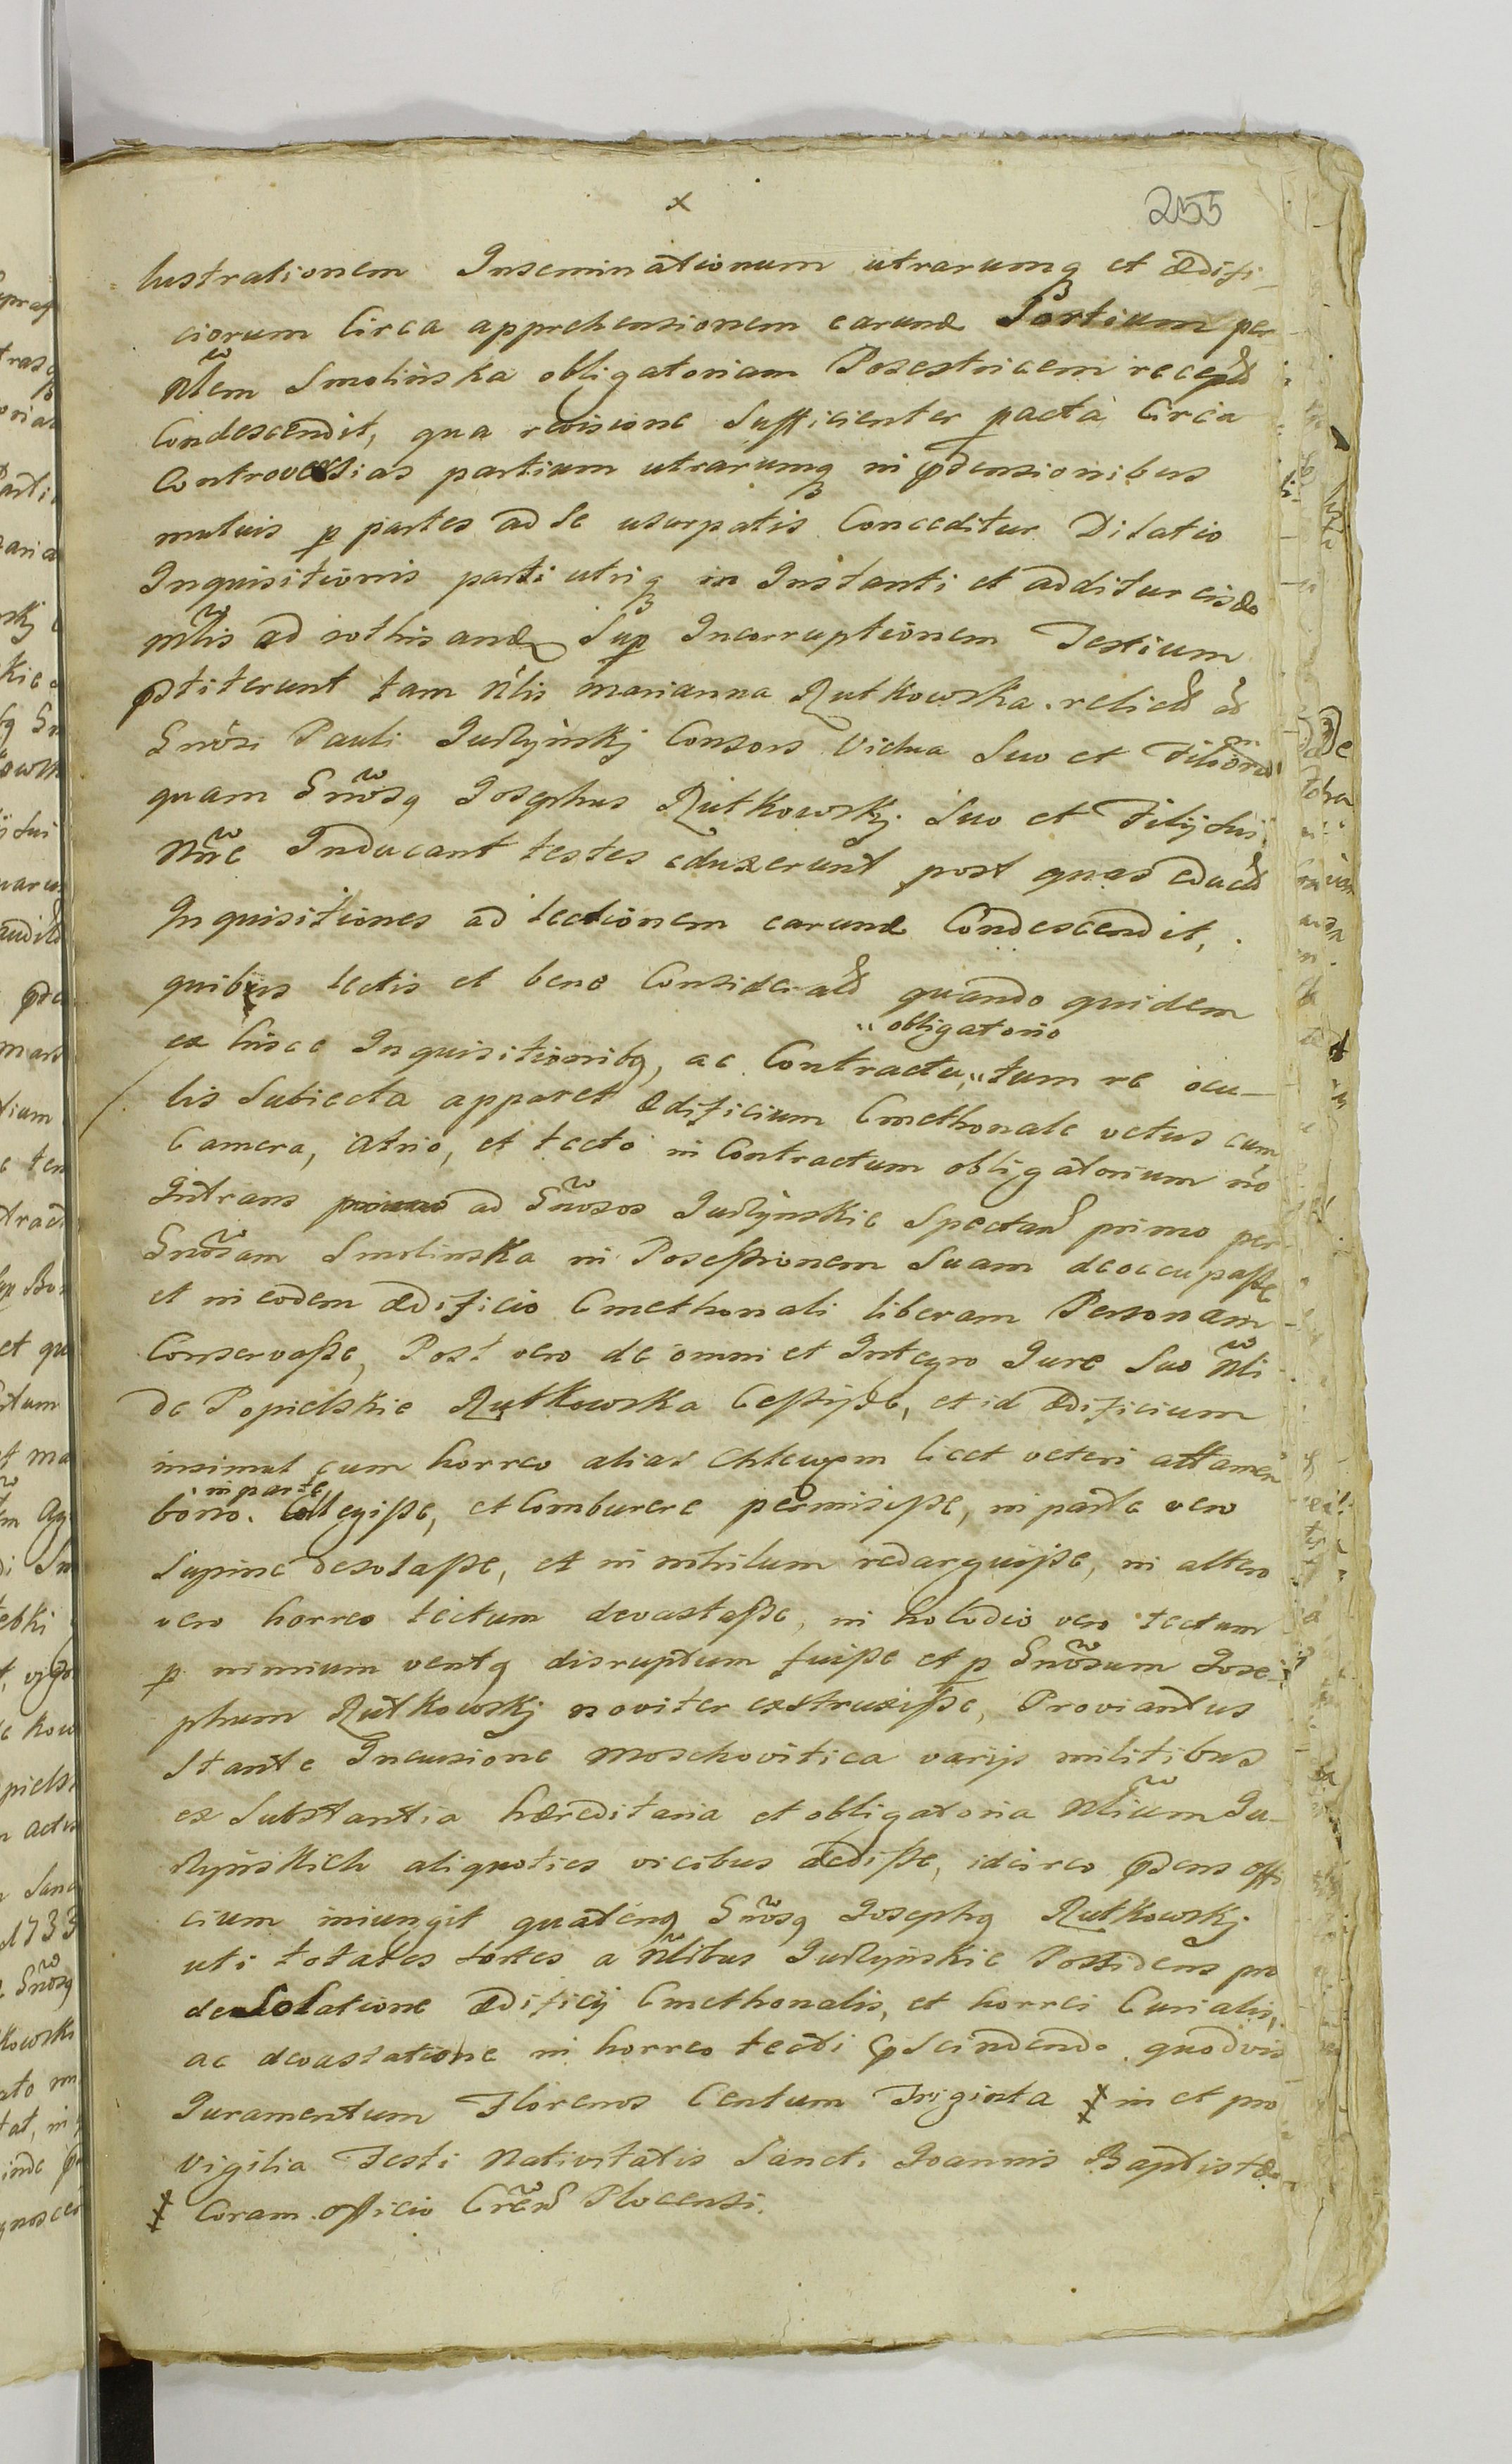 255
x
lustrationem Inseminationum utrarumq et ædifi-
ciorum Circa apprehensionem earund Sortium per
Nlem Smolinska obligatoriam Posestricem recept
Condescendit, qua revisione Sufficienter pacta Circa
Controversias partium utrarumq in prdensionibus
mutuis p partes ad Se usurpatis Conceditur Dilatio
Inquisitionis parti utriq in Instanti et additur eisde
Mlis ad rothisand Sup Incorruptionem Testium
prstiterunt tam Nlis Marianna Rutkowska relict
Gnosi Pauli Judlynskj Consors Vidua Suo et Filior
quam Gnosq Josephus Rutkowskj Suo et Filij Sui
Nne Inducant testes eduxerunt post quas educt
Inquisitiones ad lectionem earund Condescendit,
quibus lectis et bene Considerat quando quidem
ex hisce Inquisitionibq, ac Contractu "obligatorio tum re ocu-
lis Subiecta apparet ædificium Cmethonale vetus cum
Camera, atrio, et tecto in Contractum obligatorium no
Intrans ad Gnosos Judlynskie Spectan primo per
Gnosam Smolinska in Poseßionem Suam deoccupaße
et in eodem ædificio Cmethonali liberam Personam
Conservaße, Post vero de omni et Integro Jure Suo Nli
de Popielskie Rutkowska Ceßiße, et id ædificium
insimul cum horreo alias Chlewem licet veteri attamen
bono in parte Collegiße, et Comburere permisiße, in parte vero
Supine desolaße, et in nihilum redarguiße, in altero
vero horreo tectum devastaße, in holodio vero tectum
p nimium ventq disruptum fuiße et p Gnosum Jose-
phum Rutkowskj noviter exstruxiße, Proviantus
Stante Incursione Moschovitica varijs militibus
ex Substantia hæreditaria et obligatoria Nlium Ju-
dlynskich aliquoties vicibus dediße, idcirco prdens offi
cium iniungit quatenq Gnosq Josephq Rutkowskj
uti totales sortes a Nlibus Judlynskie Possidens pro
desolatione ædificij Cmethonalis, et horrei Curialis,
ac devastatione in horreo tecti prscindendo quodvis
Juramentum Florenos Centum Triginta ‡ in et pro
Vigilia Festi Nativitatis Sancti Joannis Baptistæ
‡ Coram officio Cren Plocensi.